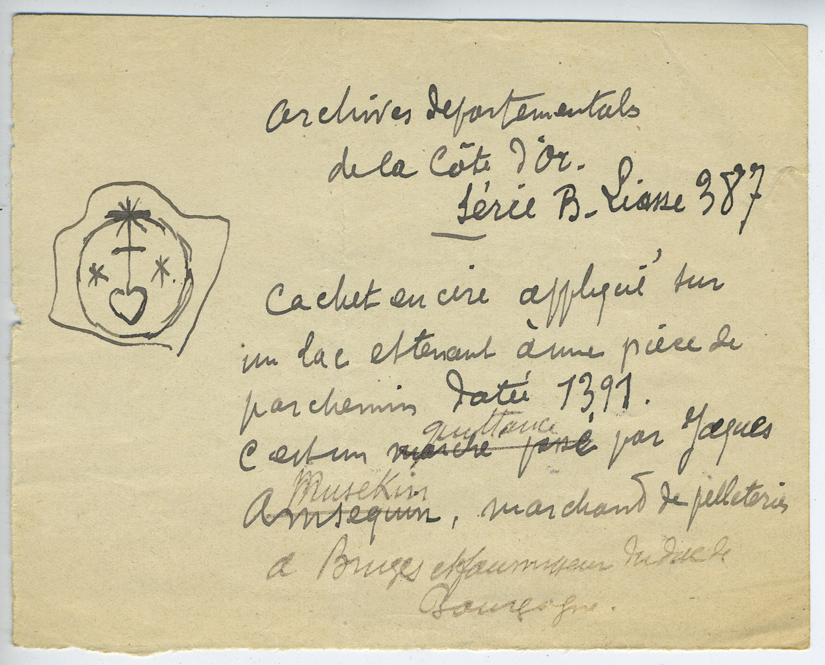 Archives départementals
de la Côte d'Or.
Série B. Liasse 387
Cachet en cire appliqué sur
un lac et tenant à une pièce de
parchemin daté 1391.
quittance
C'est un marché passé par Jacques
Musekin
Amsequin, marchand de pelleteries
à Bruges et fournisseur du duc de
Bourgogne.